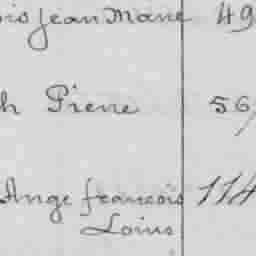 ois Jean Marie 49
h Pierre 56
Ange francois 114
Louis